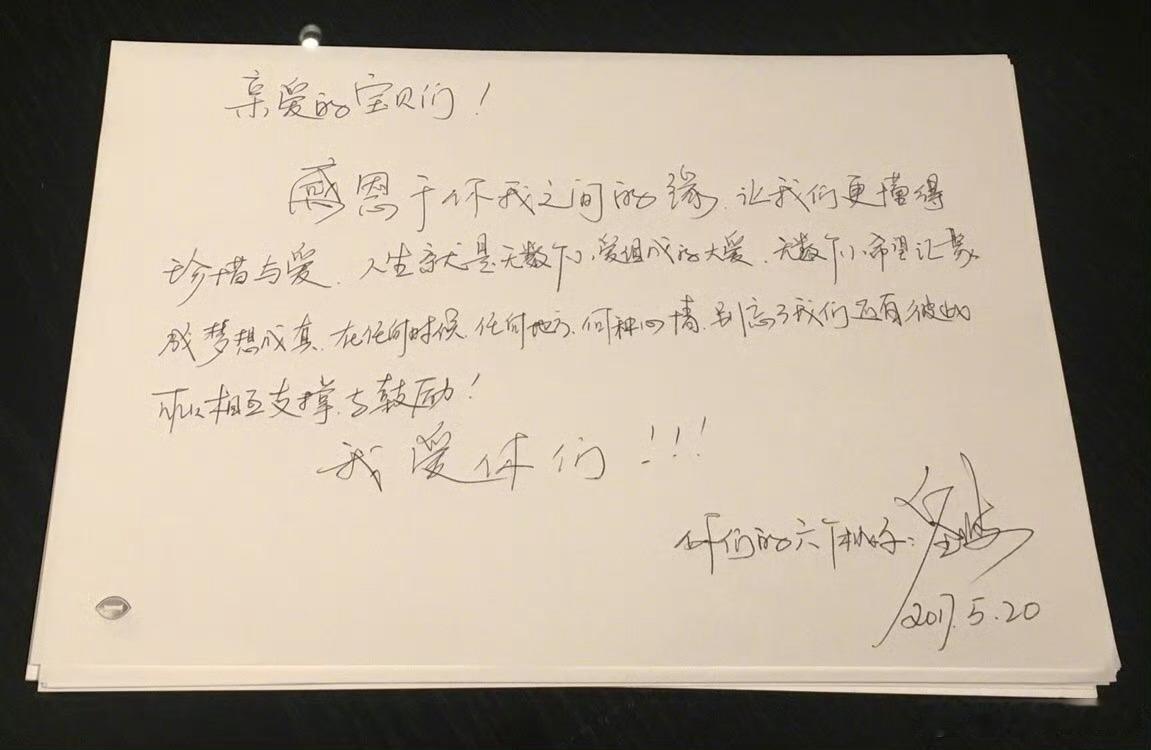 亲爱的宝贝们！
感恩于你我之间的缘.让我们更懂得
珍惜与爱.人生就是无数个小爱组成的大爱.无数个小希望汇聚
成梦想成真.在任何时候.任何地方.何种心情.别忘了我们还有彼此
可以相互支撑与鼓励！
我爱你们！！！
你们的六个机好：
2017.5.20